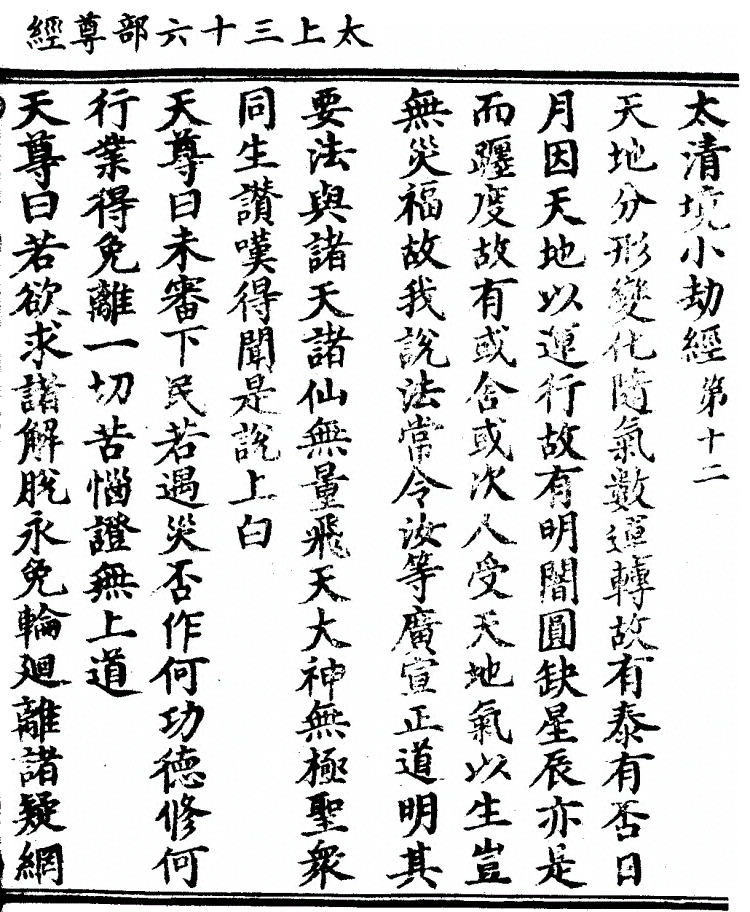 太上三十六部尊經
太清境小劫經第十二
天地分形變化隨氣數運轉故有泰有否日
月因天地以運行故有明闇圓缺星辰亦是
而躔度故有或舍或次人受天地氣以生豈
無災福故我說法常令汝等廣宣正道明其
要法與諸天諸仙無量飛天大神無極聖衆
同生讃嘆得聞是說上白
天尊曰未審下民若遇災否作何功德修何
行業得免離一切苦惱證無上道
天尊曰若欲求諸解脫永免輪廻離諸疑網